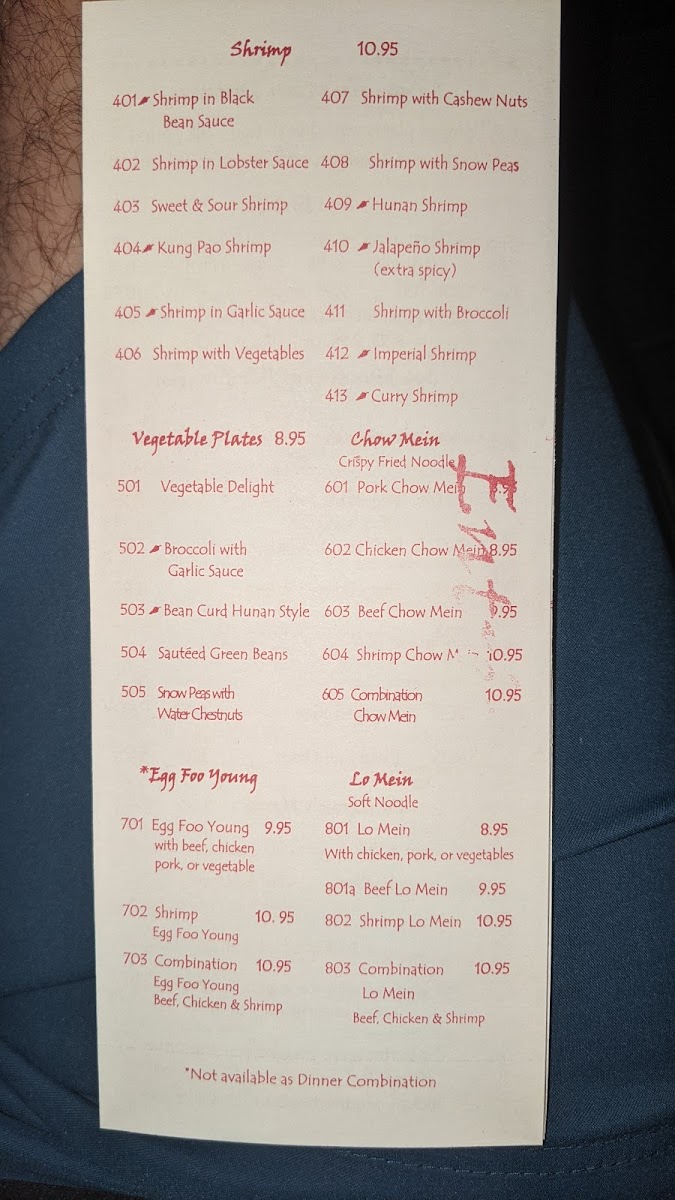 Shrimp 10.95
401 Shrimp in Black
Bean Sauce
402 Shrimp in Lobster Sauce
403 Sweet & Sour Shrimp
404 Kung Pao Shrimp
405 Shrimp in Garlic Sauce
406 Shrimp with Vegetables
407 Shrimp with Cashew Nuts
408 Shrimp with Snow Peas
409 Hunan Shrimp
410 Jalapeño Shrimp
(extra spicy)
411 Shrimp with Broccoli
412 Imperial Shrimp
413 Curry Shrimp
Vegetable Plates 8.95
501 Vegetable Delight
502 Broccoli with
Garlic Sauce
503 Bean Curd Hunan Style
504 Sautéed Green Beans
505 Snow Peas with
Water Chestnuts
Chow Mein
Crispy Fried Noodle
601 Pork Chow Mein
602 Chicken Chow Mein 8.95
603 Beef Chow Mein 9.95
604 Shrimp Chow 10.95
605 Combination 10.95
Chow Mein
*Egg Foo Young
701 Egg Foo Young 9.95
with beef, chicken
pork, or vegetable
702 Shrimp 10.95
Egg Foo Young
703 Combination 10.95
Egg Foo Young
Beef, Chicken & Shrimp
Lo Mein
Soft Noodle
801 Lo Mein 8.95
With chicken, pork, or vegetables
801a Beef Lo Mein 9.95
802 Shrimp Lo Mein 10.95
803 Combination 10.95
Lo Mein
Beef, Chicken & Shrimp
*Not available as Dinner Combination